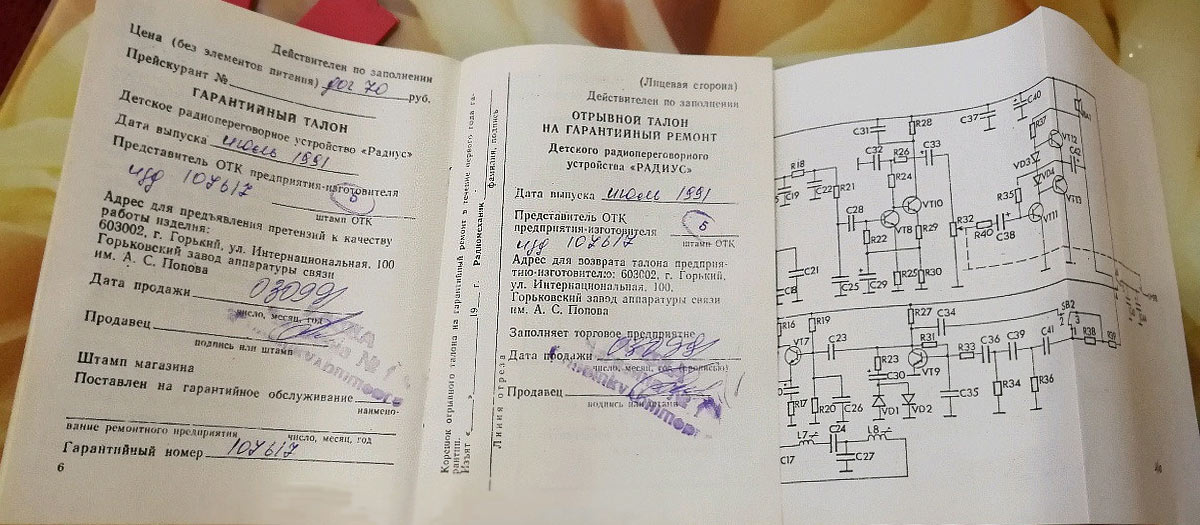 Действителен по заполнении
Цена (без элементов питания) дог 70 руб.
Прейскурант №
ГАРАНТИЙНЫЙ ТАЛОН
Детское радиопереговорное устройство «Радиус»
Дата выпуска июль 1991
Представитель ОТК предприятия-изготовителя
изд 107617
Б
штамп ОТК
Адрес для предъявления претензий к качеству
работы изделия:
603002, г. Горький, ул. Интернациональная, 100
Горьковский завод аппаратуры связи
им. А. С. Попова
Дата продажи 030991
число, месяц, год
Продавец
подпись или штамп
Штамп магазина
Поставлен на гарантийное обслуживание
наимено-
вание ремонтного предприятия число, месяц, год
Гарантийный номер 107617
6
Корешок отрывного талона на гарантийный ремонт в течение первого года га-
рантии.
Изъят « » 19 г. Радиомеханик
фамилия, подпись
Линия отреза
(Лицевая сторона)
Действителен по заполнении
ОТРЫВНОЙ ТАЛОН
НА ГАРАНТИЙНЫЙ РЕМОНТ
Детского радиопереговорного
устройства «РАДИУС»
Дата выпуска июль 1991
Представитель ОТК
предприятия-изготовителя
изд 107617
Б
штамп ОТК
Адрес для возврата талона предприя-
тию-изготовителю: 603002, г. Горький,
ул. Интернациональная, 100,
Горьковский завод аппаратуры связи
им. А. С. Попова
Заполняет торговое предприятие
Дата продажи 030991
число, месяц, год (прописью)
Продавец
подпись или штамп
C31 R28 C37 C40
R18 C32 R26 C33 R37 VT12
C19 C22 R21 R24 VD3 C42
VD4 VT13
C28 VT8 VT10 R32 R35 VT11
R22 R29 R40 C38
C21 C25 C29 R25 R30
C18
R16 R19 R27 C34 SB2
VT7 C23 R23 R31 R33 C36 C39 C41 R38 R39
C30 VT9
R17 R20 C26 VD1 VD2 C35 R34 R36
L7 C24 L8
C17 C27